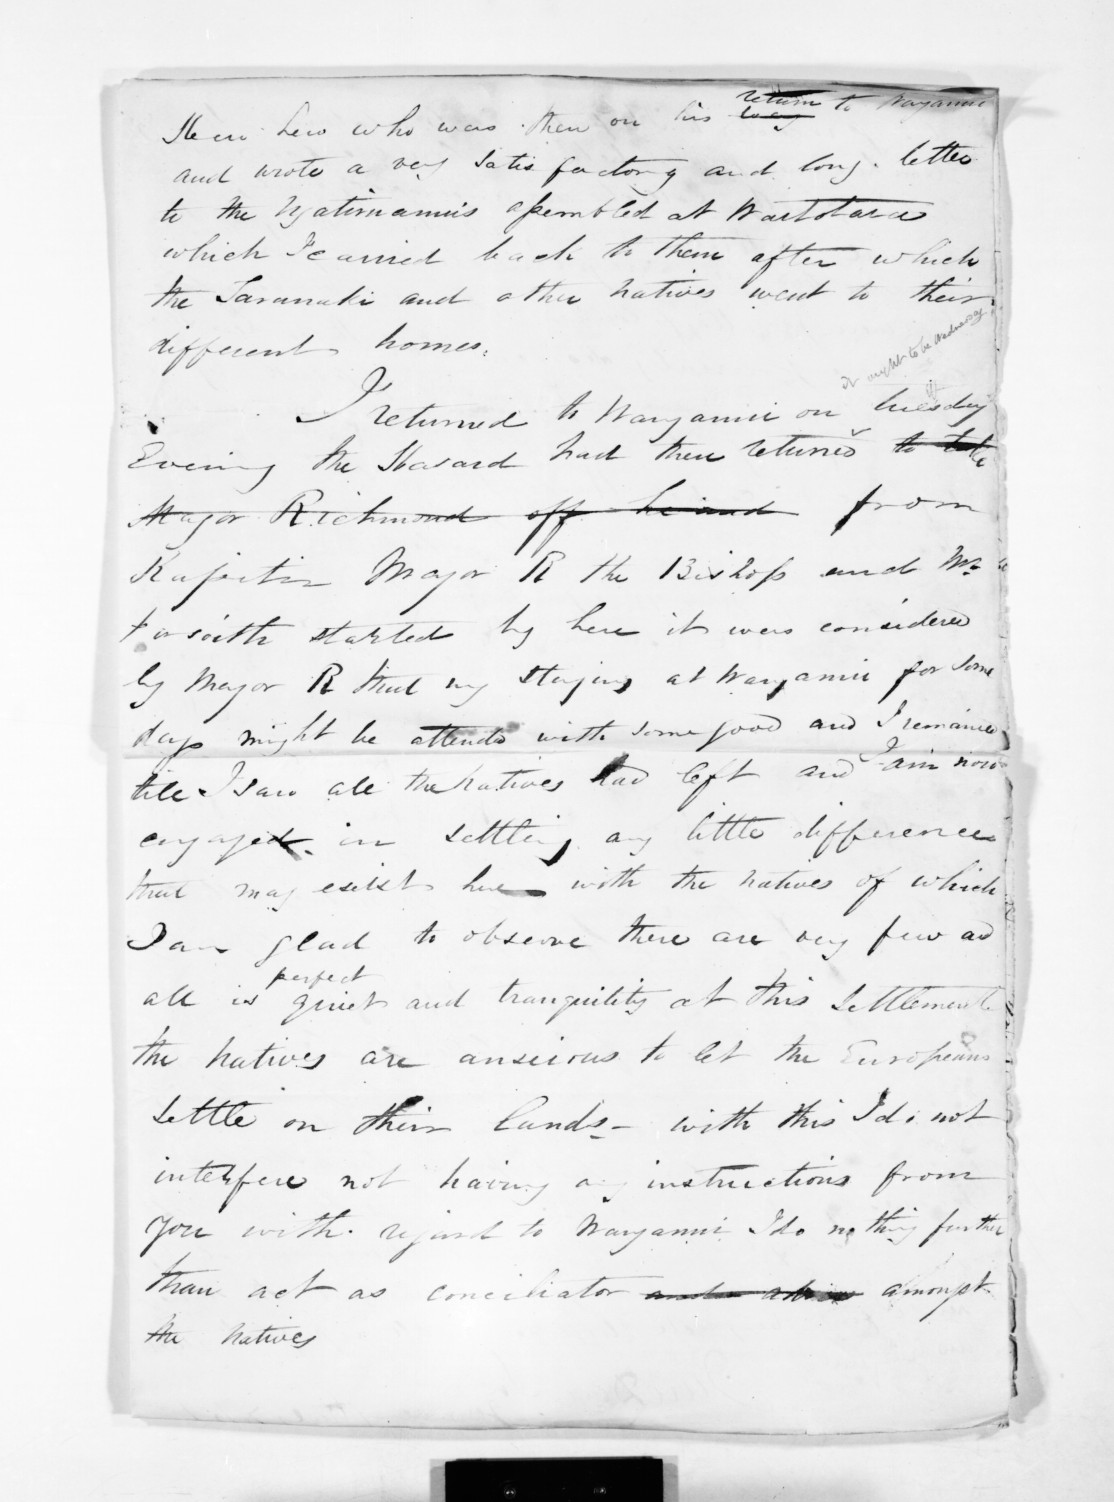 Heu Heu who was then on his return way to Wanganui
and wrote a very satisfactory and long letter
to the Ngatiruanuis assembled at Waitotara
which I carried back to them after which
the Taranaki and other natives went to their
different homes.
it ought to be Wednesday
I returned to Wanganui on tuesday
Evening the Hasard had then returned to take
Major Richmond off he and from
Kapiti Major R the Bishop and Mr
Forsaith started by here it was considered
by Major R that my staying at Wanganui for some
days might be attended with some good and I remained
till I saw all the natives had left and I am now
engaged in settling any little differences
that may exsist here with the natives of which
I am glad to observe there are very few as
all is perfect quiet and tranquility at this settlement
the natives are ansious to let the Europeans
settle on their lands - with this I do not
interfere not having any instructions from
you with regard to Wanganui I do nothing further
than act as conciliator amongst
the natives